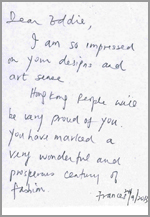 Dear Eddie,
I am so impressed
on your designs and
art sense
Hong Kong people will
be very proud of you.
You have marked a
very wonderful and
prosperous century of
fashion.
Frances